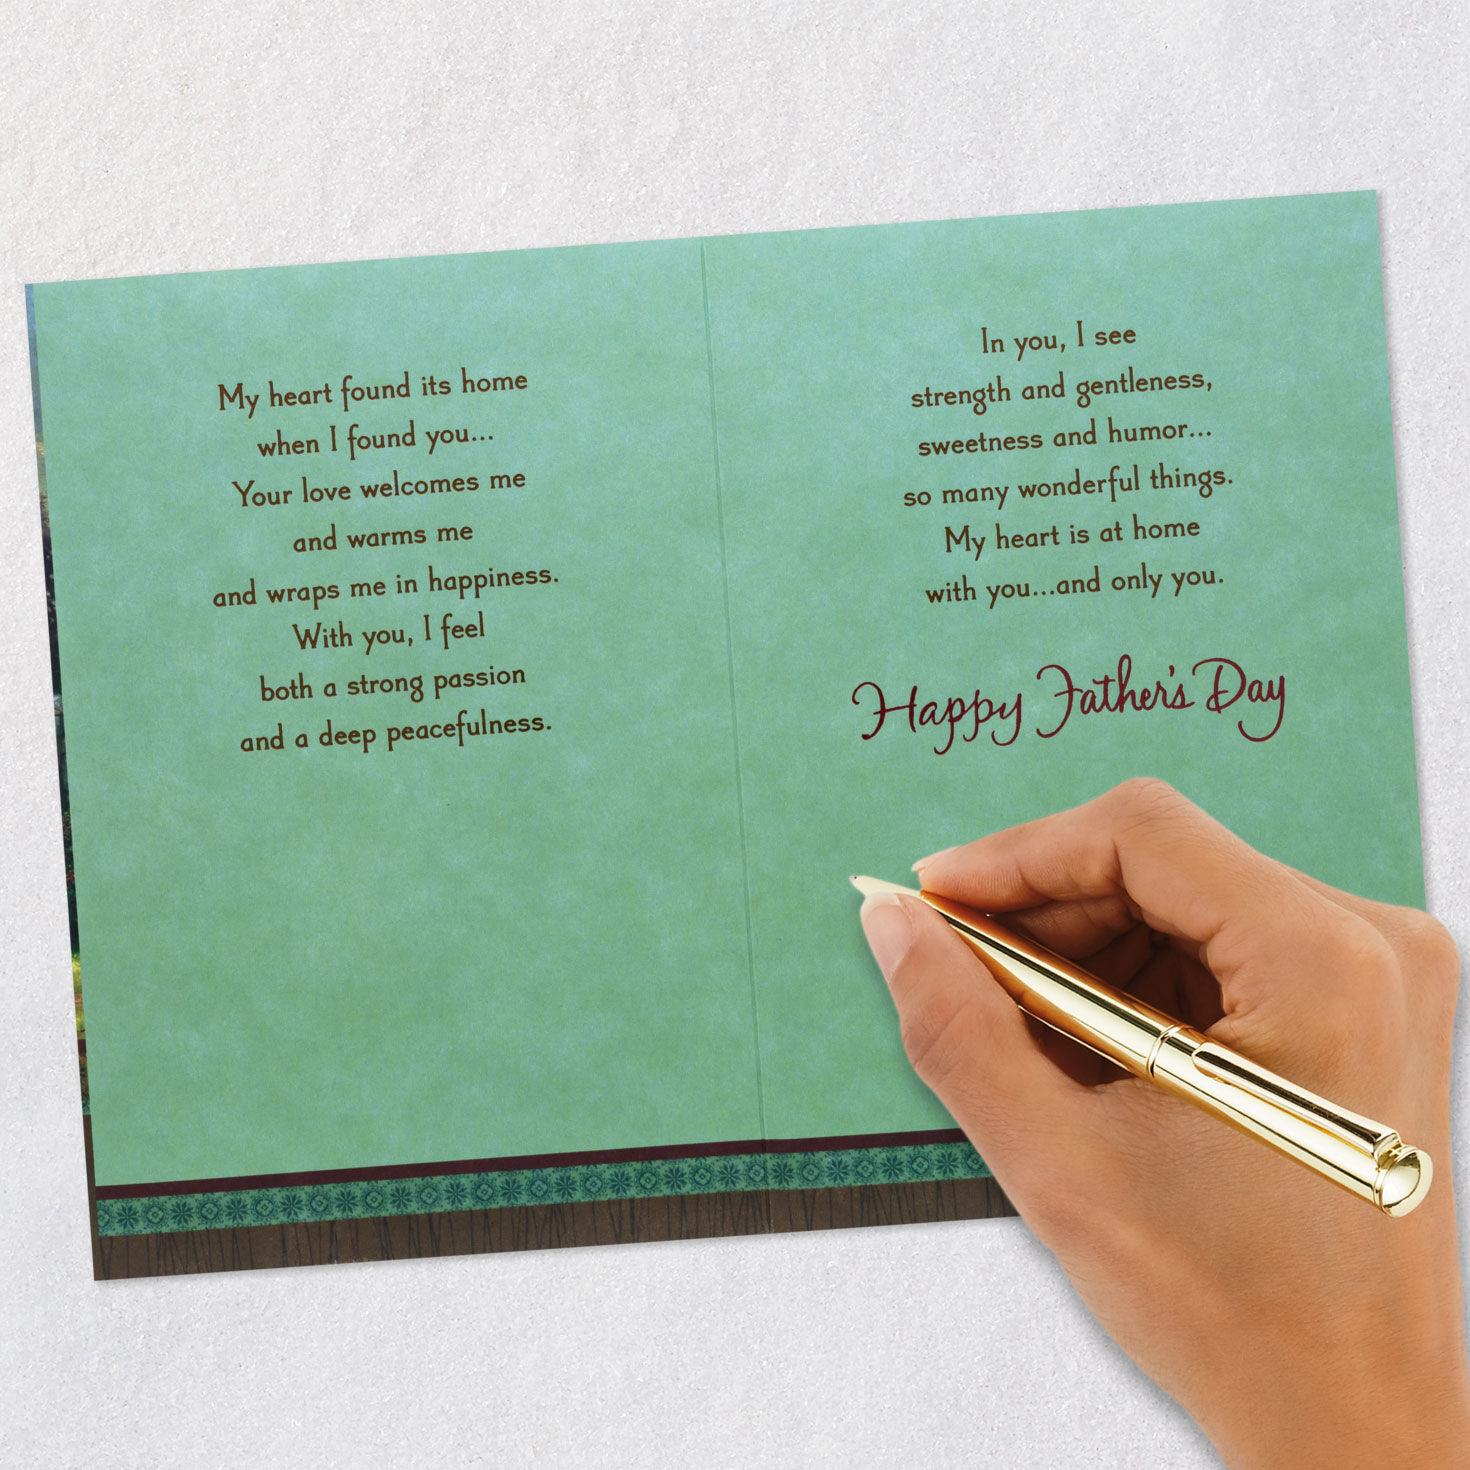 My heart found its home
when I found you...
Your love welcomes me
and warms me
and wraps me in happiness.
With you, I feel
both a strong passion
and a deep peacefulness.
In you, I see
strength and gentleness,
sweetness and humor...
so many wonderful things.
My heart is at home
with you...and only you.
Happy Father's Day